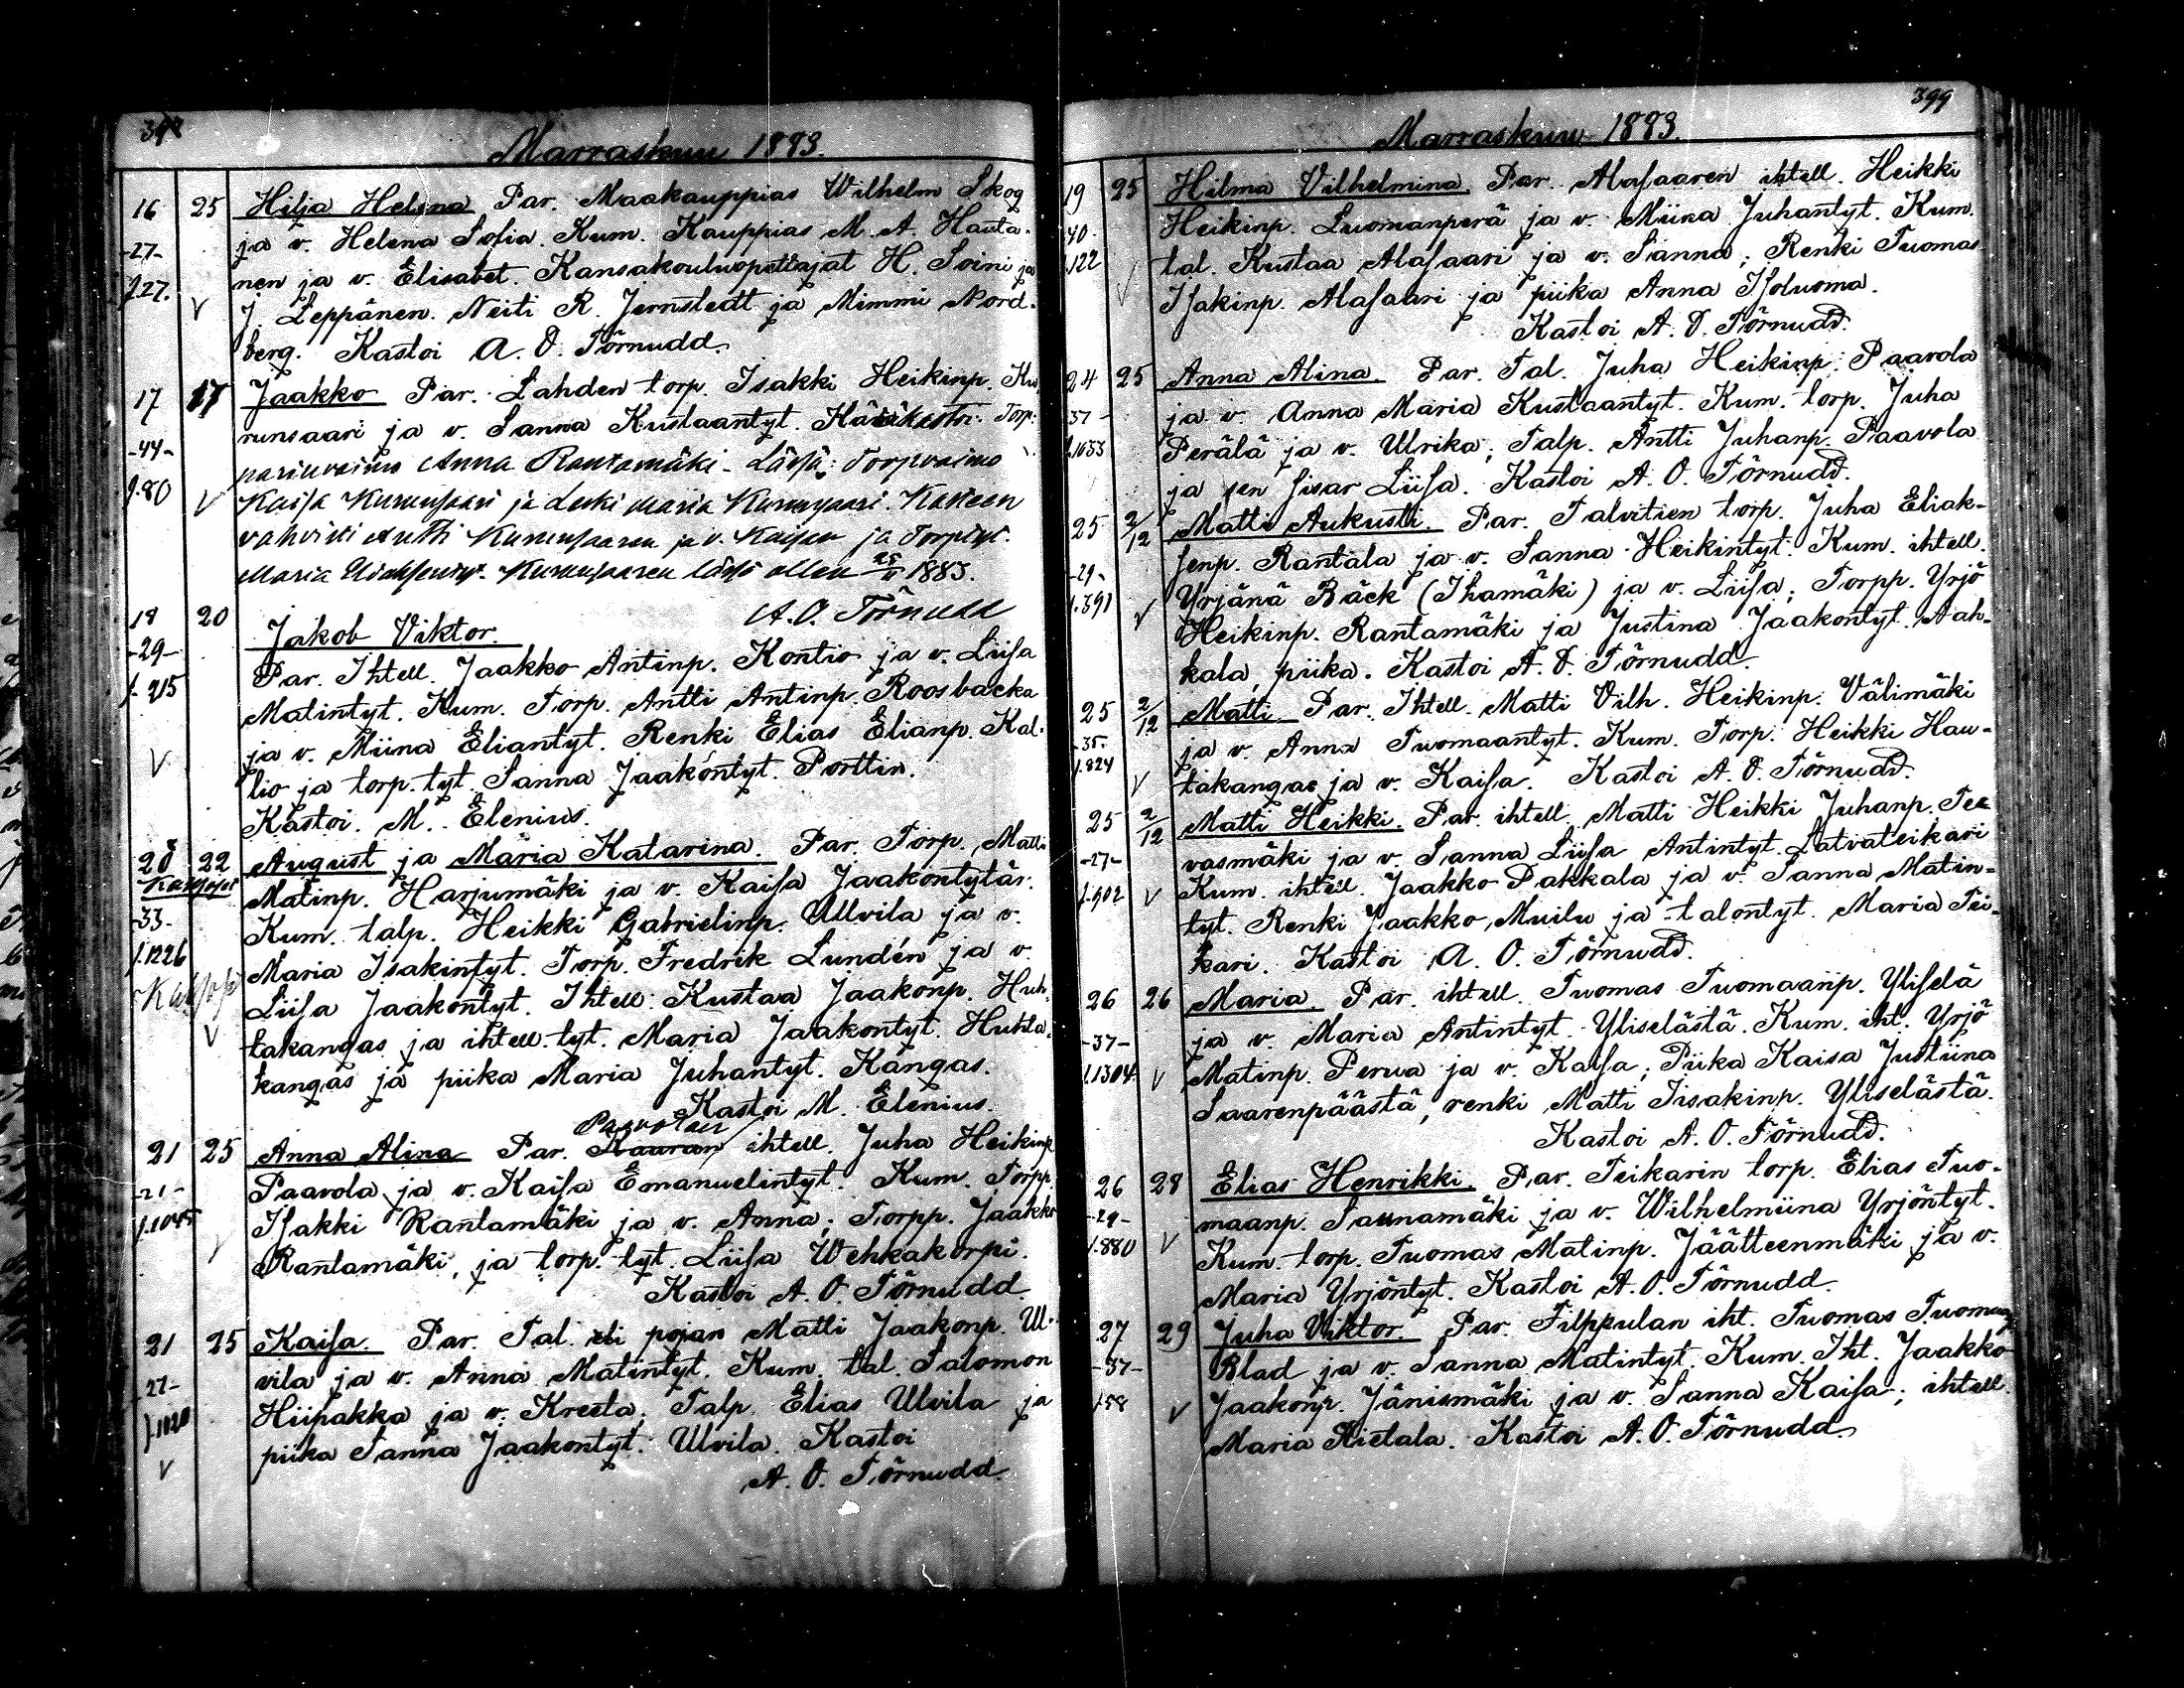 Marraskuu 1883.
16 25 Hilja Helena Par. Maakauppias Wilhelm Skog
-27- ja v. Helena Sofia. Kum. Kauppias M. A. Hauta-
f.27. nen ja v. Elisabet. Kansakouluopettajat H. Soini ja
V J. Leppänen. Neiti R. Jernstedt ja Mimmi Nord-
berg. Kastoi A. O. Törnudd.
17 17 Jaakko Par. Lahden torp. Isakki Heikinp. Ku-
runsaari ja v. Sanna Kustaantyt. Torp.
-44- Anna Rantamäki - Läsnä: Torpvaimo
f.80 V Kaisa Kurunsaari ja Leski Maria Kurunsaari. Kasteen
vahvisti Antti Kurunsaaren ja v. Kaisan ja Torptyt.
Maria Kurunsaaren läsnä ollen 25/11 1883.
A. O. Törnudd
18 20 Jakob Viktor.
-29- Par. Ihtell. Jaakko Antinp. Kontio ja v. Liisa
f. 215 Matintyt. Kum. Torp. Antti Antinp. Roosbacka
V ja v. Miina Eliantyt. Renki Elias Elianp. Kal-
lio ja torp. tyt. Sanna Jaakontyt. Porttin.
Kastoi. M. Elenius.
20 22 August ja Maria Katarina. Par. Torp. Matti
Kaksoset Matinp. Harjumäki ja v. Kaisa Jaakontytär.
-33- Kum. talp. Heikki Gabrielinp. Ullvila ja v.
f.1226 Maria Isakintyt. Torp. Fredrik Lundén ja v.
Liisa Jaakontyt. Ihtell. Kustaa Jaakonp. Huh-
V takangas ja ihtell. tyt. Maria Jaakontyt. Huhta-
kangas ja piika Maria Juhantyt. Kangas.
Kastoi M. Elenius.
Paavolan
21 25 Anna Alina Par. ihtell. Juha Heikinp.
-21- Paavola ja v. Kaisa Emanuelintyt. Kum. Torpp.
f.1045 Isakki Rantamäki ja v. Anna; Torpp. Jaakko
V Rantamäki, ja torp. tyt. Liisa Wehkakorpi.
Kastoi A. O. Törnudd
21 25 Kaisa. Par. Tal. pojan Matti Jaakonp. Ul-
-27- vila ja v. Anna Matintyt. Kum. tal. Salomon
Hiipakka ja v. Kreeta. Talp. Elias Ulvila ja
V piika Sanna Jaakontyt. Ulvila. Kastoi
A. O. Törnudd.
399
Marraskuu 1883.
19 25 Hilma Vilhelmina. Par. Alasaaren ihtell. Heikki
40. Heikinp. Luomanperä ja v. Miina Juhantyt. Kum.
f.122 tal. Kustaa Alasaari ja v. Sanna; Renki Tuomas
V Isakinp. Alasaari ja piika Anna Isoluoma.
Kastoi A. O. Törnudd.
24 25 Anna Alina Par. Tal. Juha Heikinp. Paavola
37- ja v. Anna Maria Kustaantyt. Kum. torp. Juha
f.1033 Perälä ja v. Ulrika; Talp. Antti Juhanp. Paavola
ja sen sisar Liisa. Kastoi A. O. Törnudd.
25 2/12 Matti Aukusti. Par. Talvitien torp. Juha Eliak-
-29- senp. Rantala ja v. Sanna Heikintyt. Kum. ihtell.
f.391 Yrjänä Bäck (Ihamäki) ja v. Liisa; Torpp. Yrjö
V Heikinp. Rantamäki ja Justina Jaakontyt.
kala, piika. Kastoi A. O. Törnudd.
25 2/12 Matti Par. Ihtell. Matti Vilh. Heikinp. Välimäki
-35- ja v. Anna Tuomaantyt. Kum. Torp. Heikki Hau-
f.824 V takangas ja v. Kaisa. Kastoi A. O. Törnudd.
25 2/12 Matti Heikki. Par. ihtell. Matti Heikki Juhanp. Ter-
-27- vasmäki ja v. Sanna Liisa Antintyt. Latvateikari
f.902 V Kum. ihtell. Jaakko Pakkala ja v. Sanna Matin-
tyt. Renki Jaakko Muilu ja talontyt. Maria Tei-
kari. Kastoi A. O. Törnudd.
26 26 Maria. Par. ihtell. Tuomas Tuomaanp. Yliselä
-37- ja v. Maria Antintyt. Yliselästä. Kum. iht. Yrjö
f.1304. V Matinp. Perua ja v. Kaisa; Piika Kaisa Justiina
Saarenpäästä, renki Matti Iisakinp. Yliselästä.
Kastoi A. O. Törnudd.
26 28 Elias Henrikki. Par. Teikarin torp. Elias Tuo-
-29- maanp. Saunamäki ja v. Wilhelmiina Yrjöntyt.
f.880 V Kum. torp. Tuomas Matinp. Jäätteenmäki ja v.
Maria Yrjöntyt. Kastoi A. O. Törnudd.
27 29 Juha Viktor. Par. Filppulan iht. Tuomas Tuomaanp.
-37- Blad ja v. Sanna Matintyt. Kum. Iht. Jaakko
f.58 V Jaakonp. Jänismäki ja v. Sanna Kaisa; ihtell.
Maria Hietala. Kastoi A. O. Törnudd.